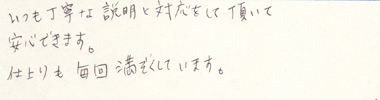 いつも丁寧な説明と対応をして頂いて
安心できます。
仕上りも毎回満ぞくしています。